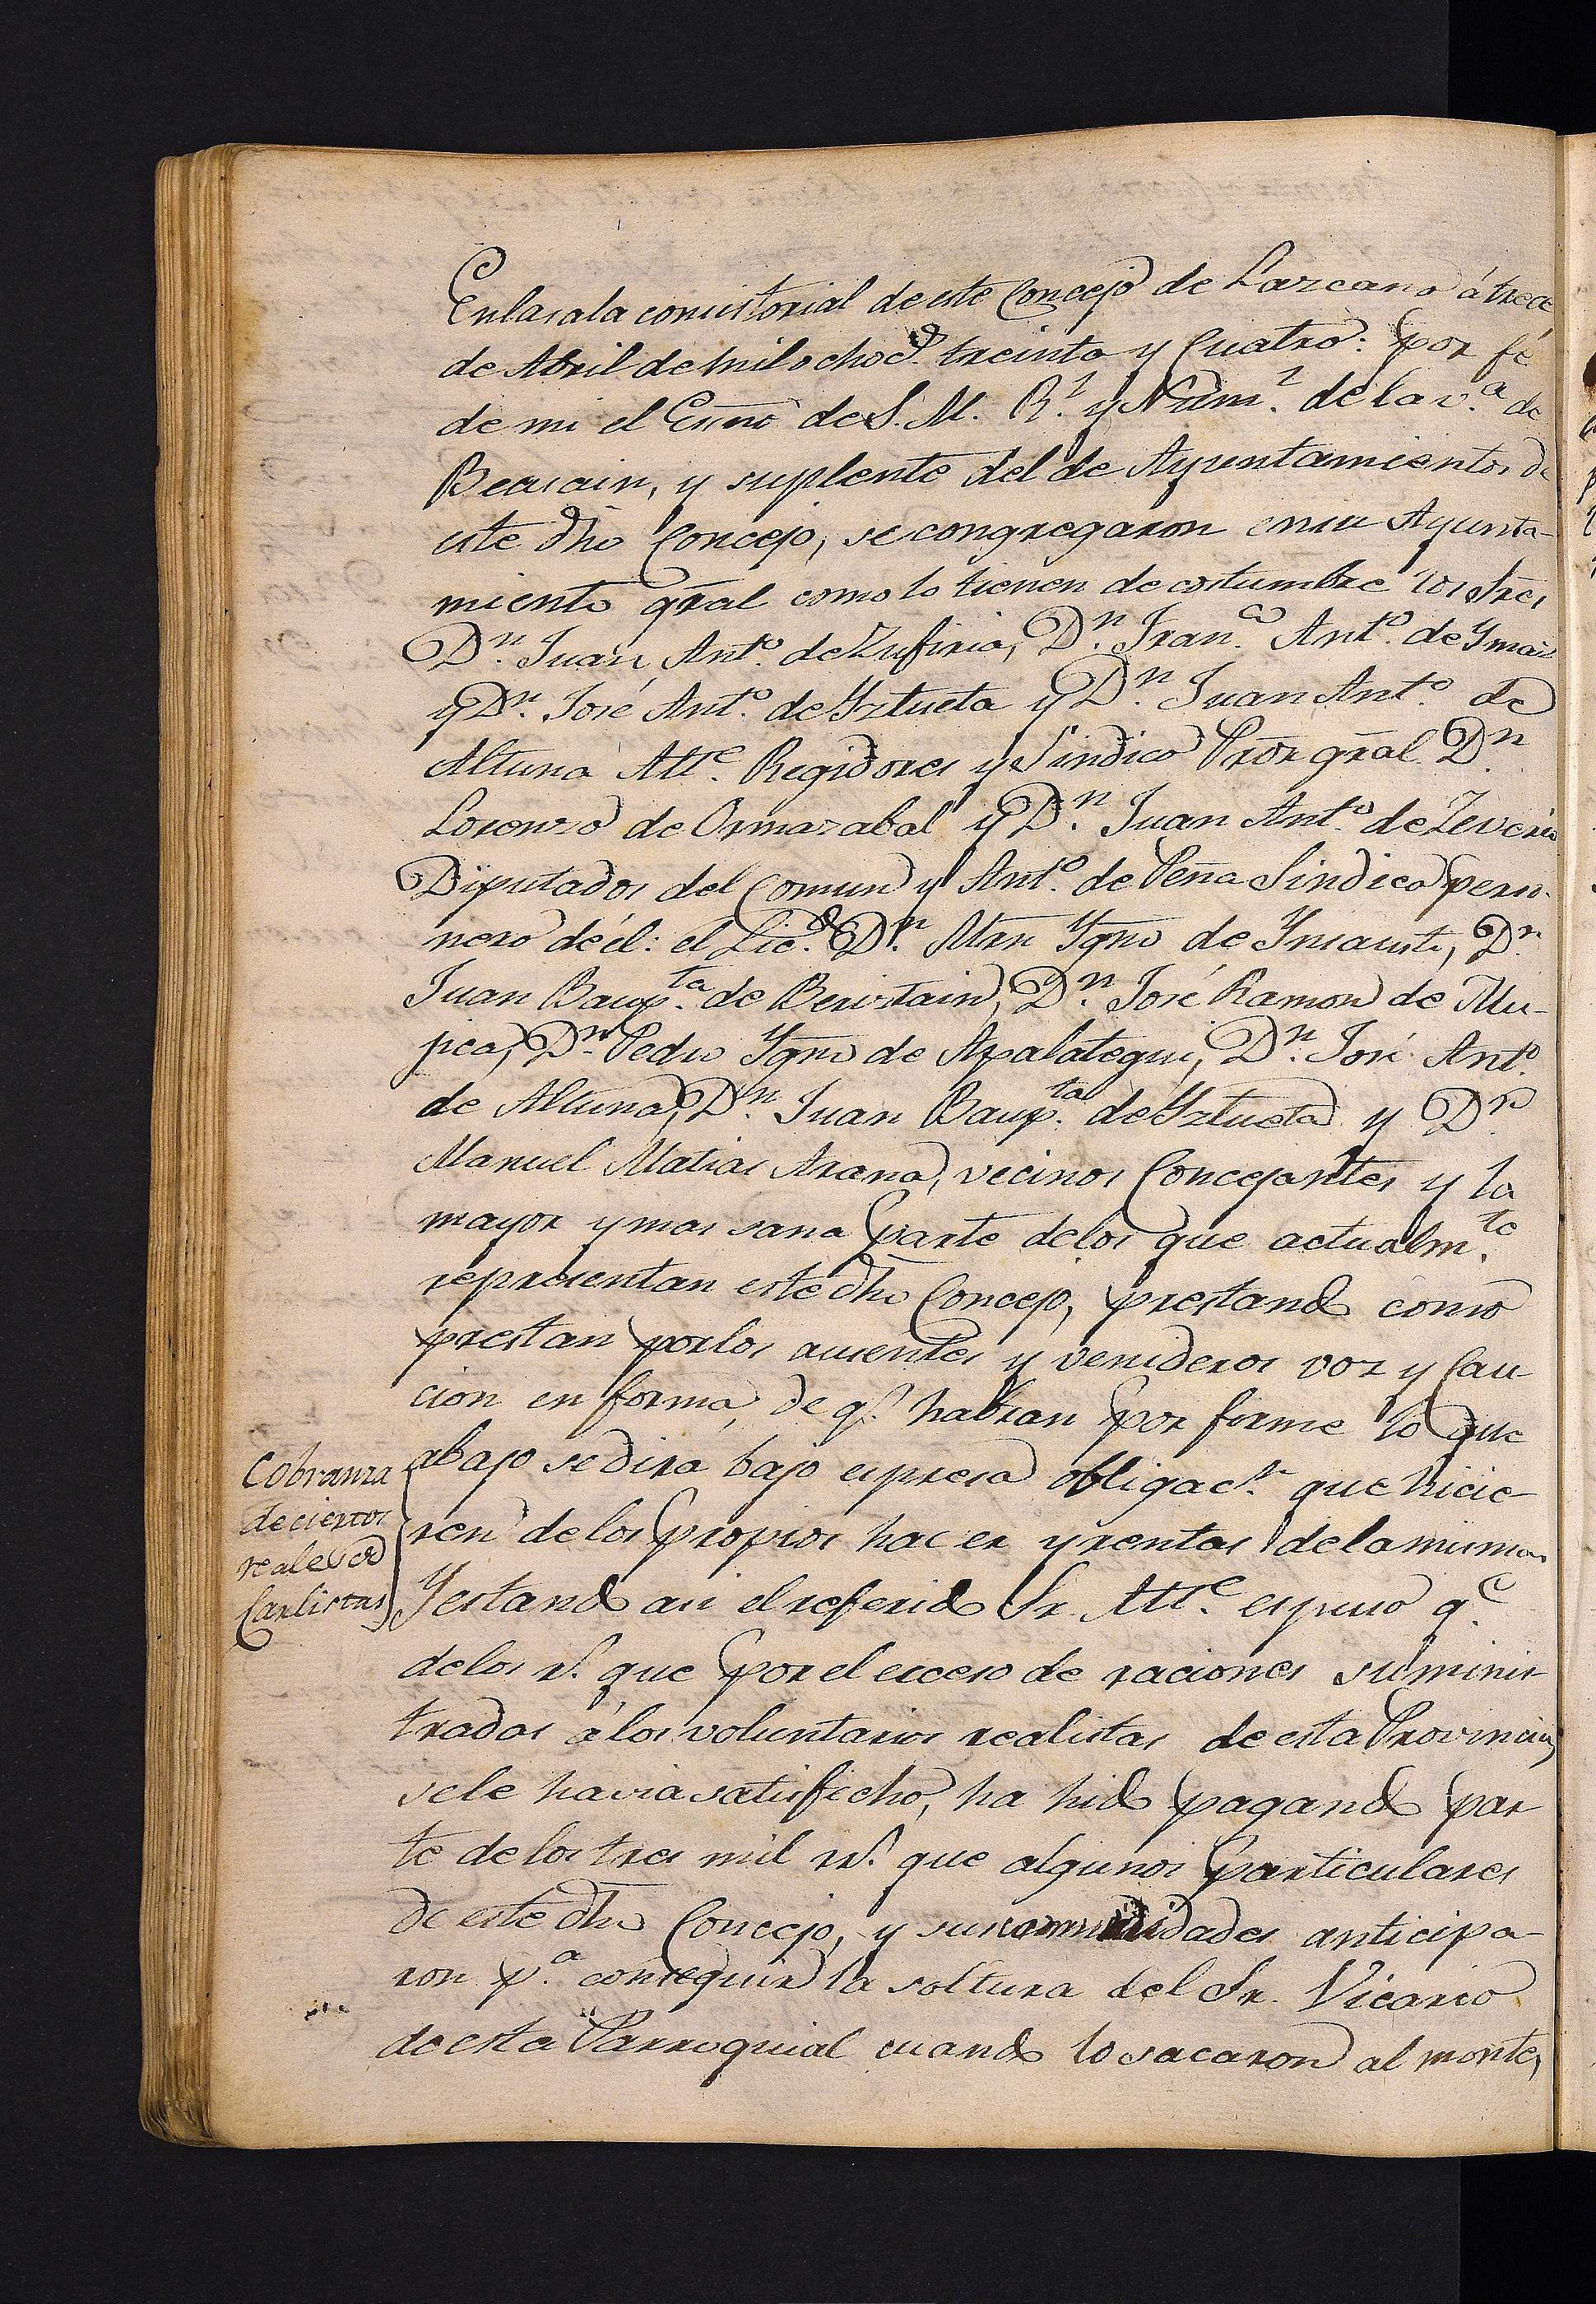 En la sala consistorial de este Concejo de Lazcano á trece
de Abril de mil ochos. treinta y Cuatro: por fé
de mi el Essno de S. M. R.l y Num.l de la v.a de
Beasain, y suplente del de Ayuntamientos de
este dho Concejo, se congregaron en su Ayunta-
miento gral como lo tienen de costumbre los Sres
Dn. Juan Anto. de Zufiria, Dn. Franco. Anto. de Ymaz
y Dn. José Anto. de Yztueta y Dn. Juan Anto. de
Altuna Alle. Regidores y Sindico Pror gral Dn.
Lorenzo de Ormazabal y Dn. Juan Anto. de Zeverio
Diputados del Comun y Anto. de Peña Sindico perso-
nero de él: el Licdo. Dn. Mrn Ygno de Ynsausti, Dn.
Juan Baupta. de Beristain, Dn. José Ramon de Mu-
jica, Dn. Pedro Ygno de Apalategui, Dn. José Anto.
de Altuna, Dn. Juan Baupta. de Yztueta y Dn.
Manuel Matias Arana, vecinos Concejantes y la
mayor y mas sana parte de los que actualmte.
representan este dho Concejo, prestando como
prestan por los ausentes y venideros voz y Cau-
cion en forma, de qe. habran por firme lo que
abajo se dirá bajo espresa obligacn. que hicie-
ren de los propios haces y rentas de la misma
Cobranza
de ciertos
reales
Carlistas
Y estando asi el referido Sr. Alle. espuso qe.
de los rs. que por el esceso de raciones suminis-
trados á los voluntarios realistas de esta Provincia,
se le havia satisfecho, ha hido pagando par-
te de los tres mil rs. que algunos particulares
de este dho Concejo, y sus comunidades anticipa-
ron pa. conseguir la soltura del Sr. Vicario
de esta Parroquial cuando lo sacaron al monte,